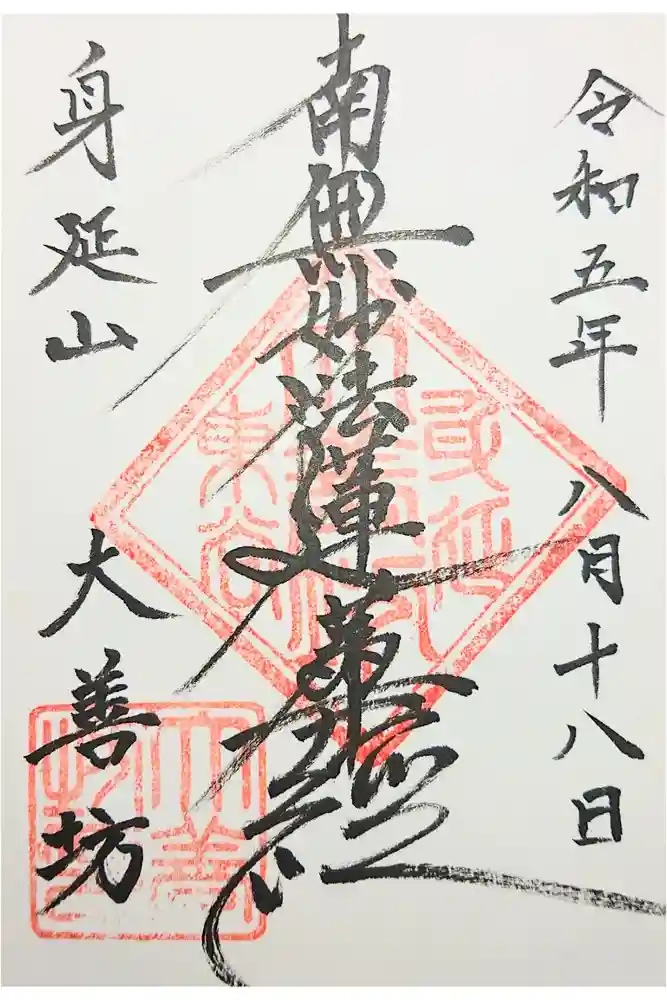 令和五年 八月十八日
南無妙法蓮華経
身延山 大善坊
身延
東谷